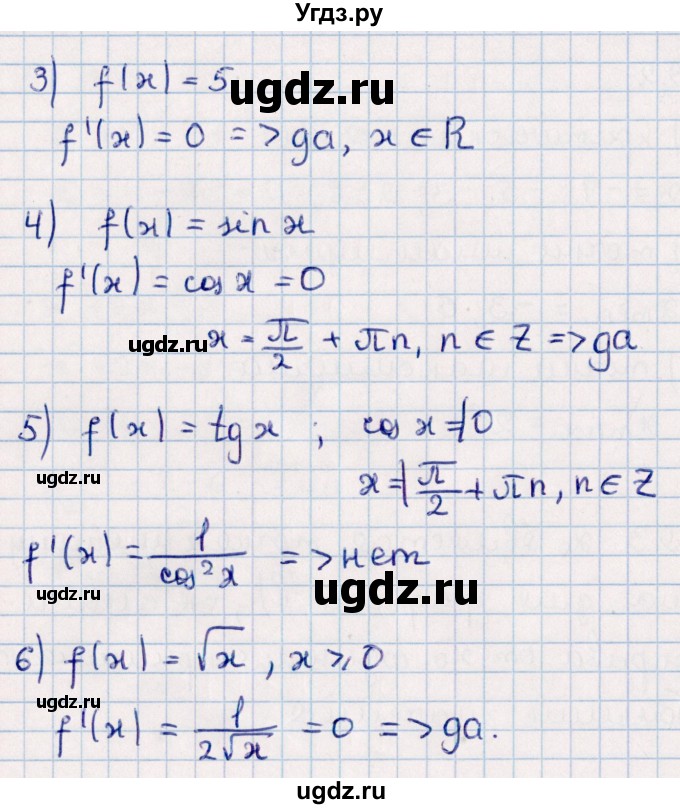 Угдз.ру
3) f(x) = 5
ugdz.ru
f'(x) = 0 => да, x ∈ R
4) f(x) = sin x
f'(x) = cos x = 0
ugdz.ru x = π/2 + πn, n ∈ Z => да
5) f(x) = tg x ; cos x ≠ 0
ugdz.ru x ≠ π/2 + πn, n ∈ Z
f'(x) = 1/cos²x => нет
ugdz.ru
6) f(x) = √x, x ⩾ 0
ugdz.ru
f'(x) = 1/(2√x) = 0 => да.
ugdz.ru